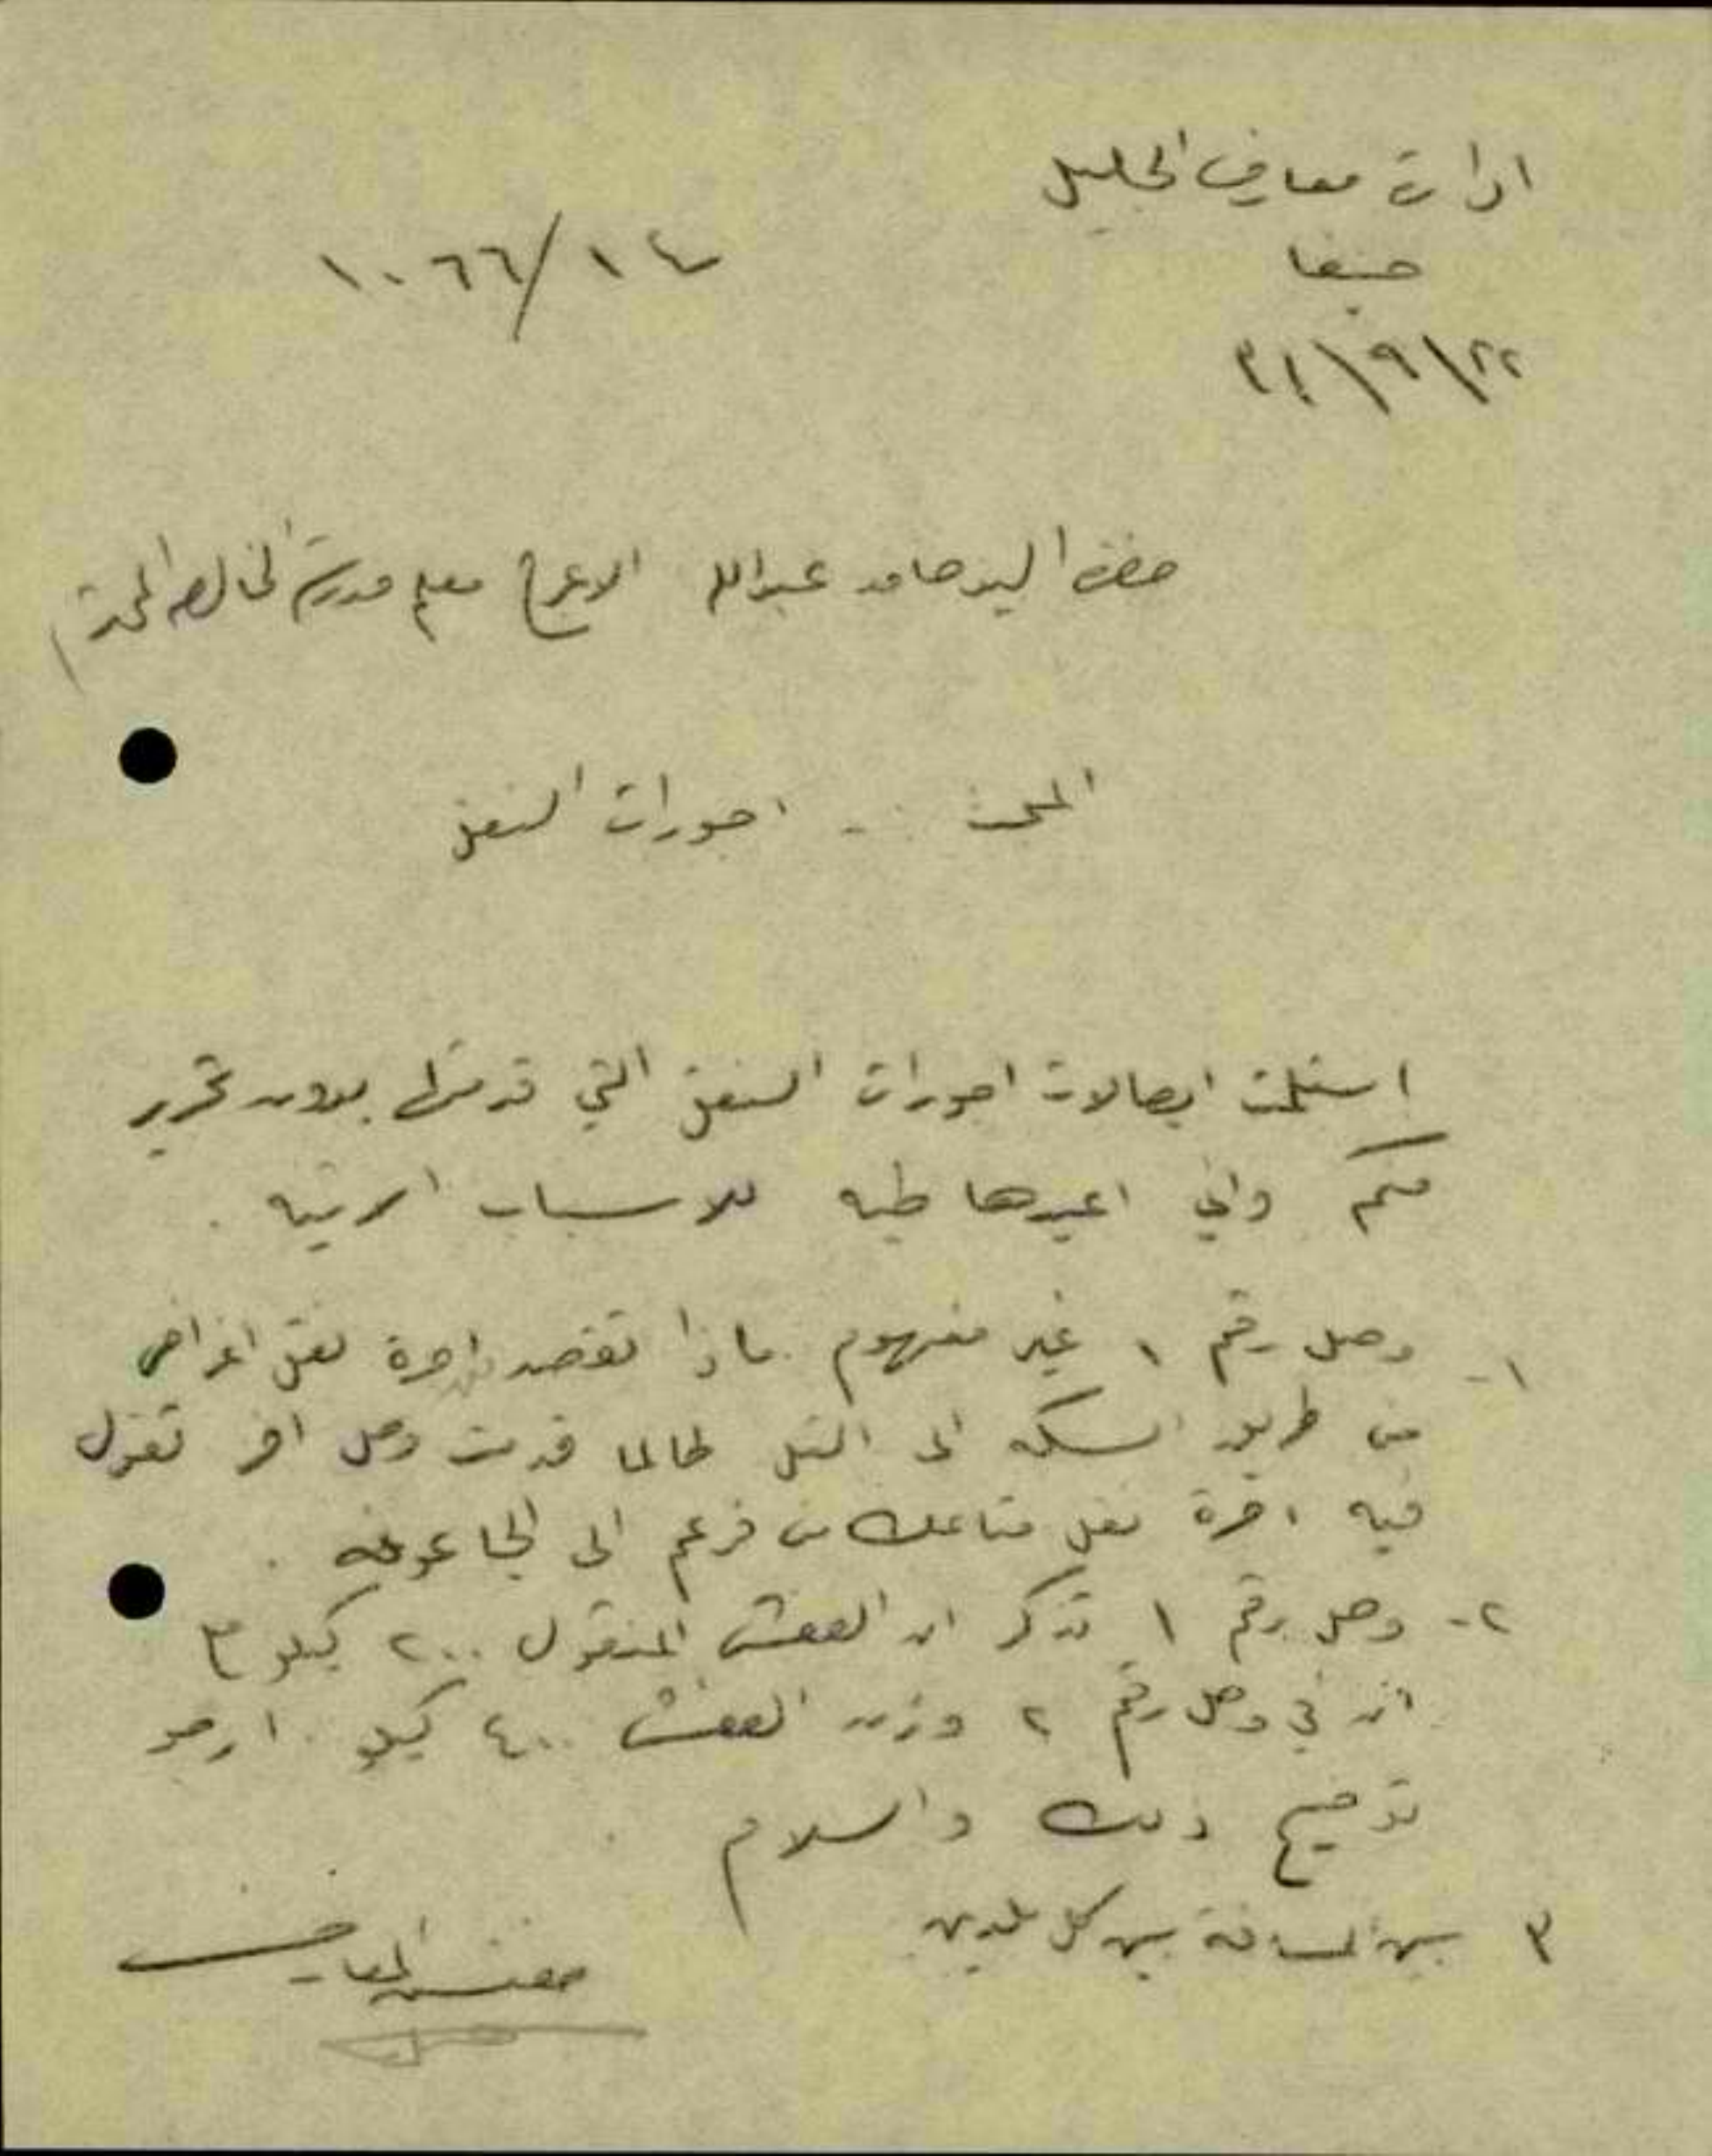 ادارة معارف الجليل
حيفا
١٠٦٦/١٤
٢٢\٩\٣١
حضرة السيد حامد عبدالله الاعرج معلم مدرسة الخالصه المحترم
المبحث - اجورات النقل
استلمت ايصالات اجورات النقل التي قدمتها بدون تحرير
منكم واني اعيدها طيه للاسباب الاتيه .
١- وصل رقم ١ غير مفهوم ماذا تقصد اجرة نقل اغراض
من طريق السكه الى التل طالما قدمت وصل اخر تقول
فيه اجرة نقل متاعك من فرعم الى الجاعونه .
٢- وصل رقم ١ تذكر ان العفش المنقول ٢٠٠ كيلو مع
ان في وصل رقم ٢ وزن العفش ٤٠٠ كيلو . ارجو
توضيح ذلك والسلام
٣ بين المسافة بين كل بلدين
مفتش المعارف